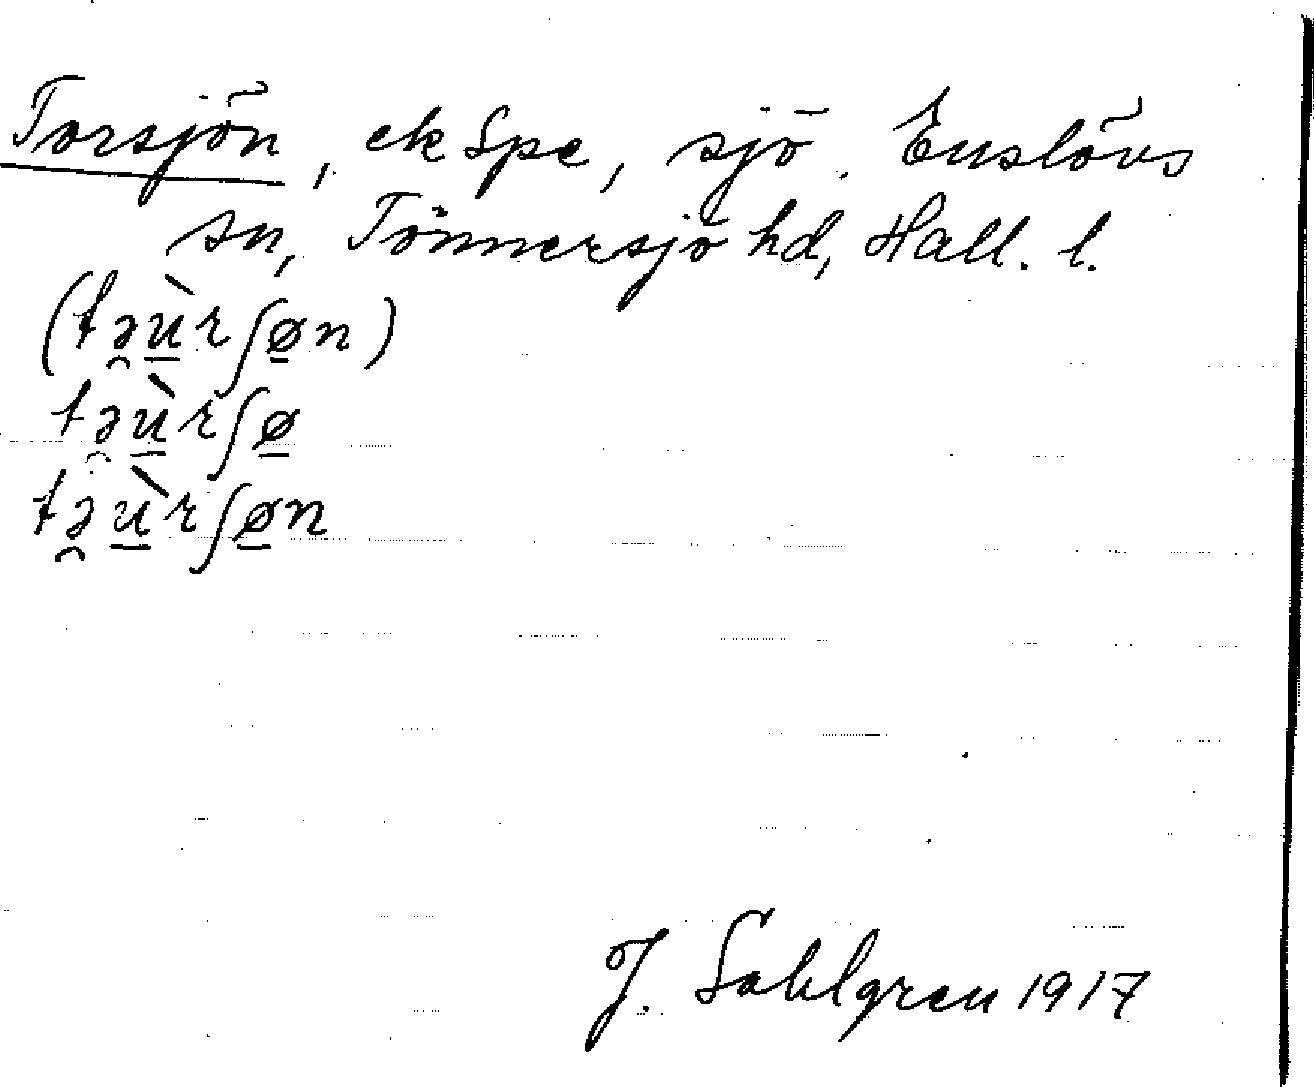 Torsjön, ek Spe, sjö. Enslövs
sn, Tönnersjö hd, Hall. l.
(tə̯ù̠rʃø̠n)
tə̯ù̠rʃø̠
tə̯ù̠rʃø̠n
J. Sahlgren 1917